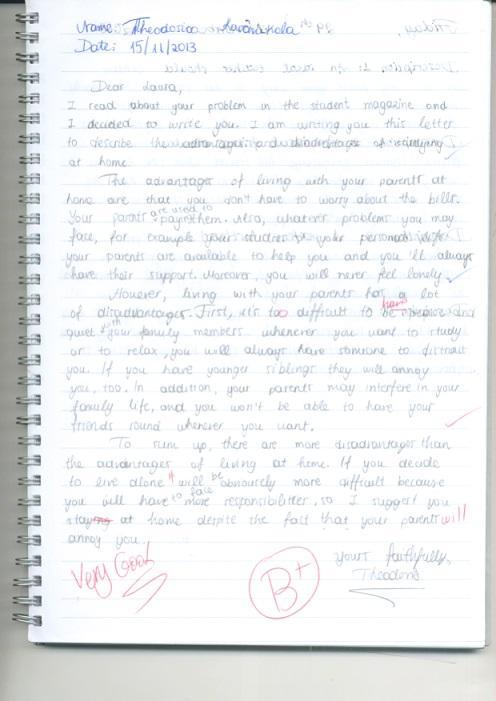 Name: Theodosia
Date: 15/11/2013
Dear Laura,
I read about your problem in the student magazine and
I decided to write you. I am writing you this letter
to describe the advantages and disadvantages of
at home.
The advantages of living with your parents at
home are that you don't have to worry about the bills.
Your parents are used to paying them. Also, whatever problems you may
face, for example your studies or your personal life
your parents are available to help you and you'll always
have their support. Moreover, you will never feel lonely.
However, living with your parents has a lot
of disadvantages. First, it's too difficult to have and
quiet with your family members whenever you want to study
or to relax, you will always have someone to distract
you. If you have younger siblings they will annoy
you, too. In addition, your parents may interfere in your
family life, and you won't be able to have your
friends round whenever you want.
To sum up, there are more disadvantages than
the advantages of living at home. If you decide
to live alone it will be obviously more difficult because
you will have to face more responsibilities, so I suggest you
stay at home despite the fact that your parents will
annoy you.
Very Good
B+
yours faithfully,